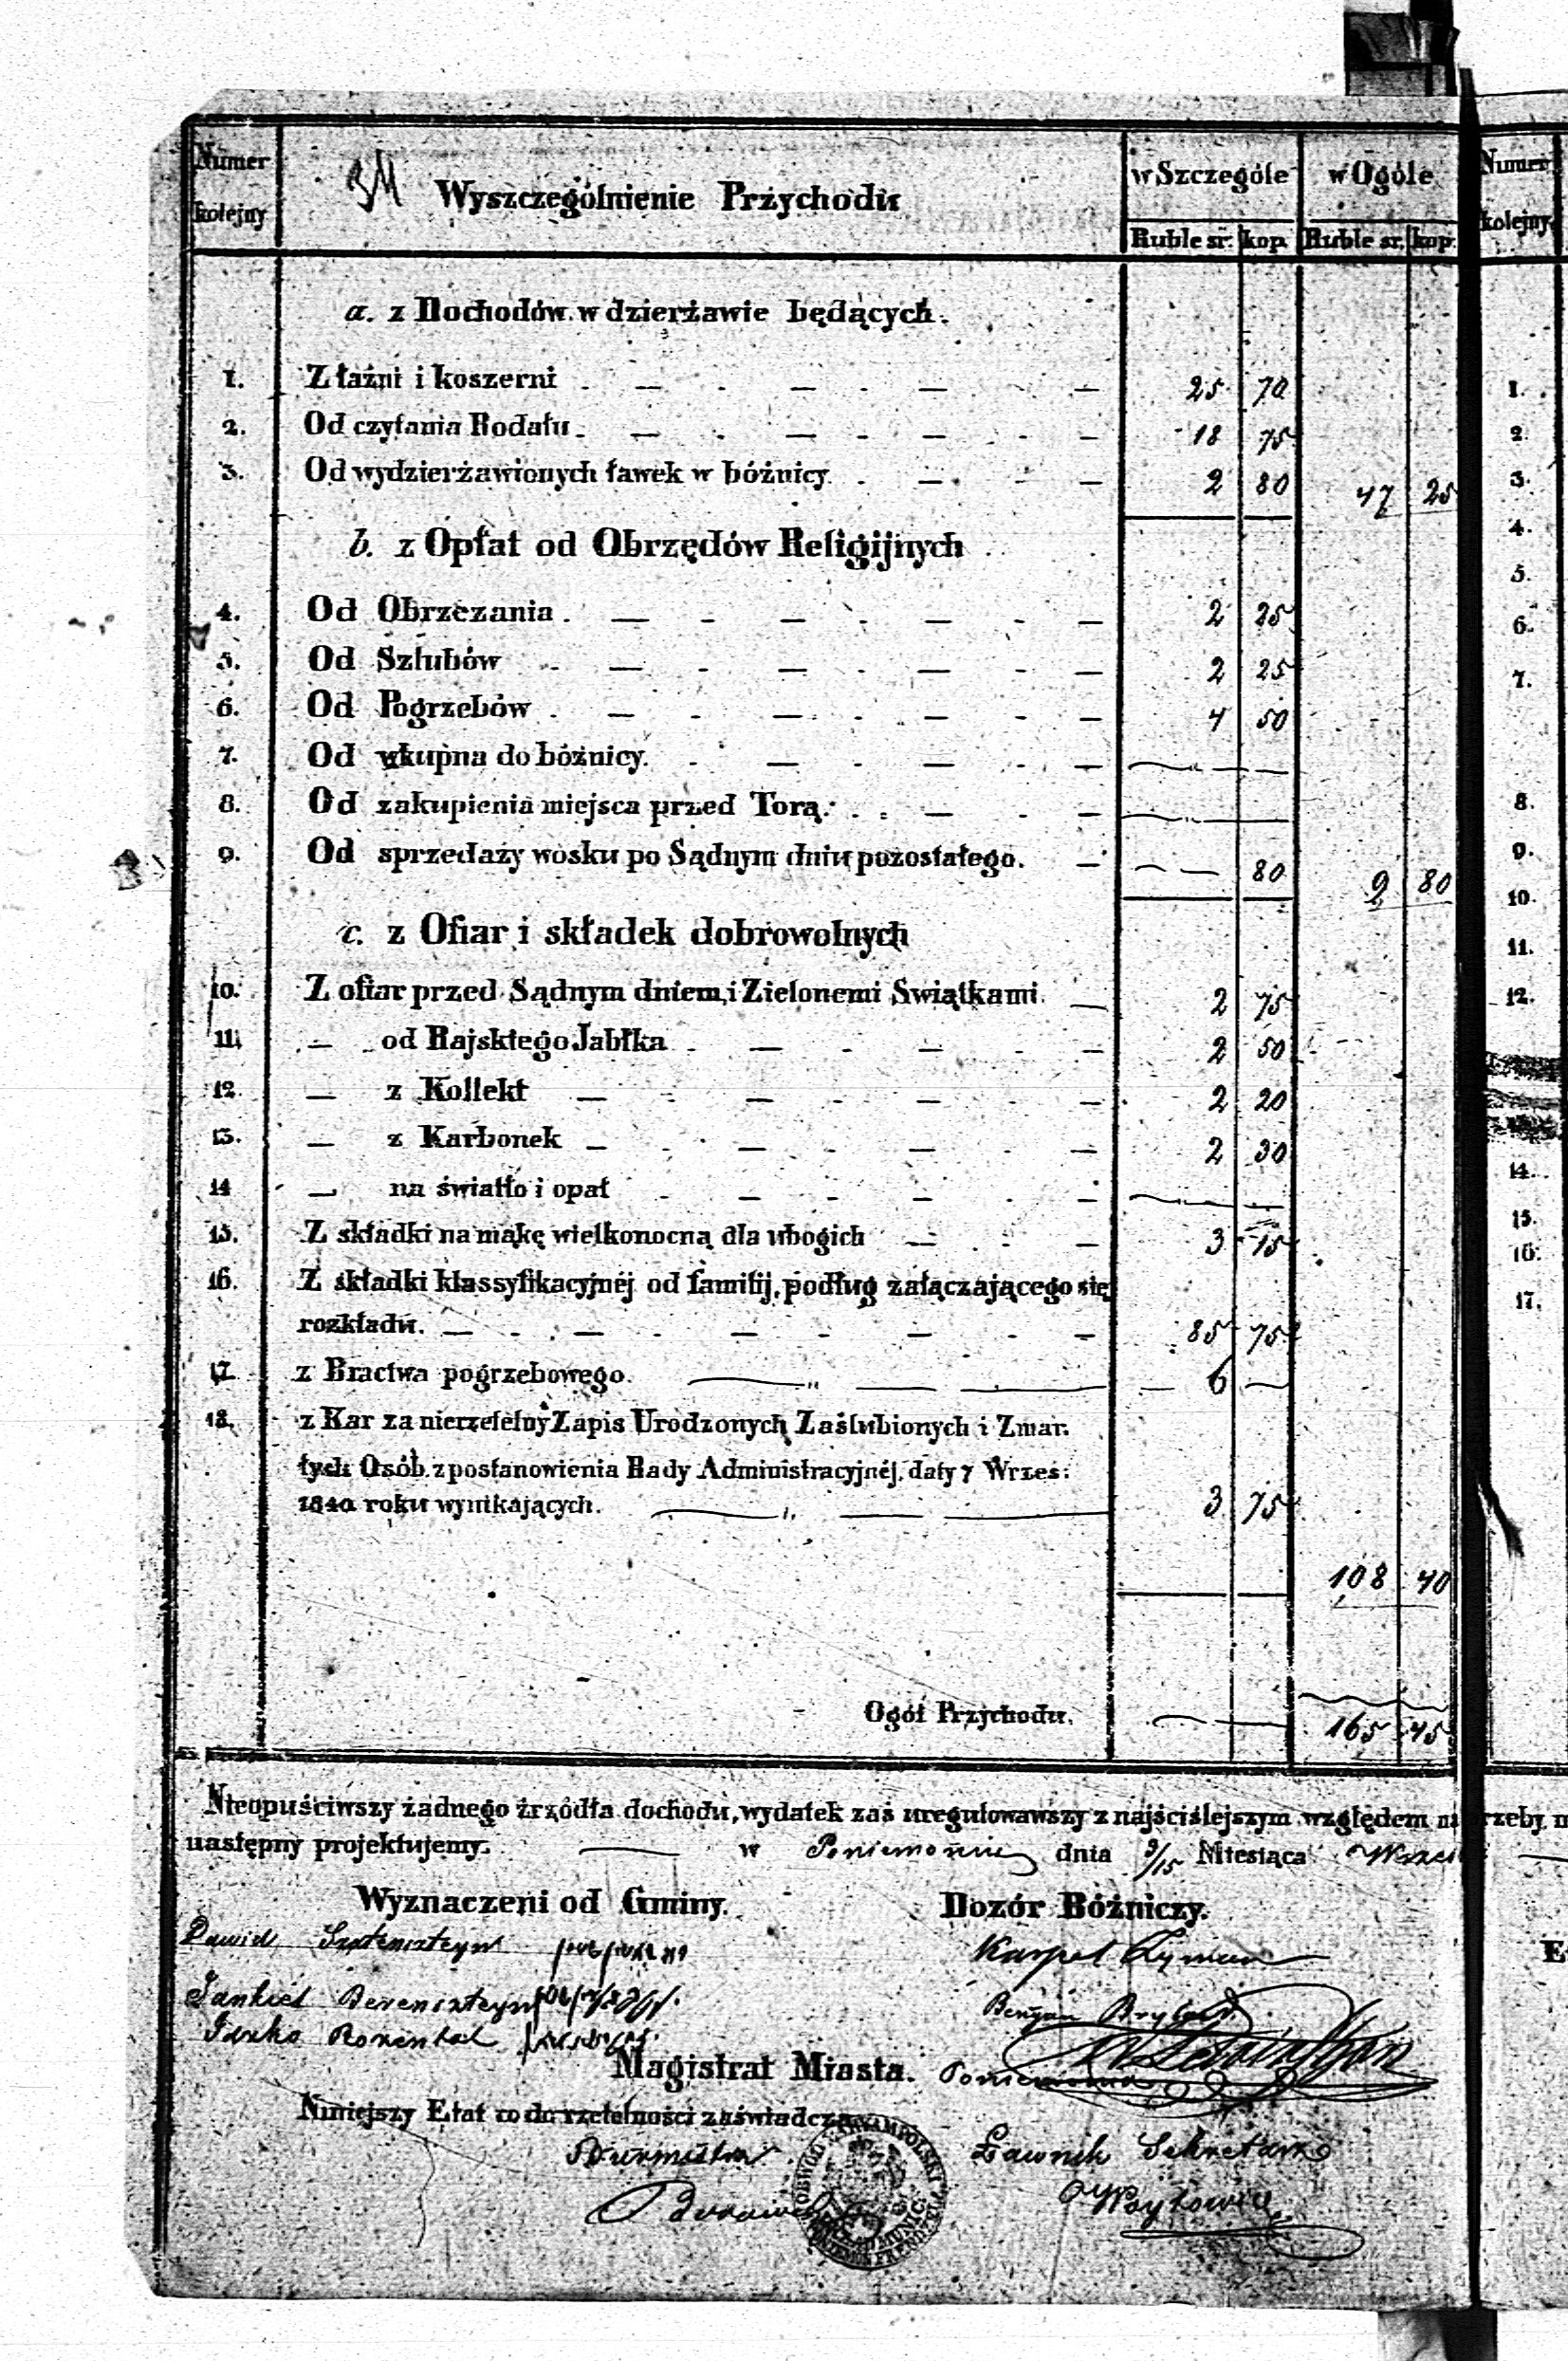 Numer kolejny
Wyszczególnienie Przychodu
w Szczególe w Ogóle
Ruble sr. kop. Ruble sr. kop.
a. z Dochodów w dzierżawie będących.
1. Z łaźni i koszerni 25 70
2. Od czytania Rodału 18 75
3. Od wydzierżawionych ławek w bóżnicy 2 80 47 25
b. z Opłat od Obrzędów Religijnych
4. Od Obrzezania 2 25
5. Od Szlubów 2 25
6. Od Pogrzebów 4 50
7. Od wkupna do bóżnicy
8. Od zakupienia miejsca przed Torą
9. Od sprzedaży wosku po Sądnym dniu pozostałego. 80 9 80
c. z Ofiar i składek dobrowolnych
10. Z ofiar przed Sądnym dniem i Zielonemi Swiątkami 2 75
11. — od Rajskiego Jabłka 2 50
12. — z Kollekt 2 20
13. — z Karbonek 2 30
14 — na światło i opał
15. Z składki na mąkę wielkonocną dla ubogich 3 15
16. Z składki klassyfikacyjnéj od familij, podług załączającego się
rozkładu. 85 75
17. z Bractwa pogrzebowego. 6 —
18. z Kar za nierzetelny Zapis Urodzonych Zaślubionych i Zmar.
łych Osób z postanowienia Rady Administracyjnéj, daty 7 Wrzes:
1840 roku wynikających. 3 75
108 40
Ogół Przychodu. 165 45
Nieopuściwszy żadnego żrzódła dochodu, wydatek zaś uregulowawszy z najściślejszym względem
następny projektujemy. w Poniemoniu dnia 3/15 Miesiąca
Wyznaczeni od Gminy. Dozór Bóżniczy.
Dawid
Jankiel Berensteyn
Rozental
Karpel
Magistrat Miasta.
Niniejszy Etat co do rzetelności zaświadcza
Burmistrz Ławnik Sekretarz
Numer kolejny
1.
2.
3.
4.
5.
6.
7.
8.
9.
10.
11.
12.
14.
15.
16.
17.